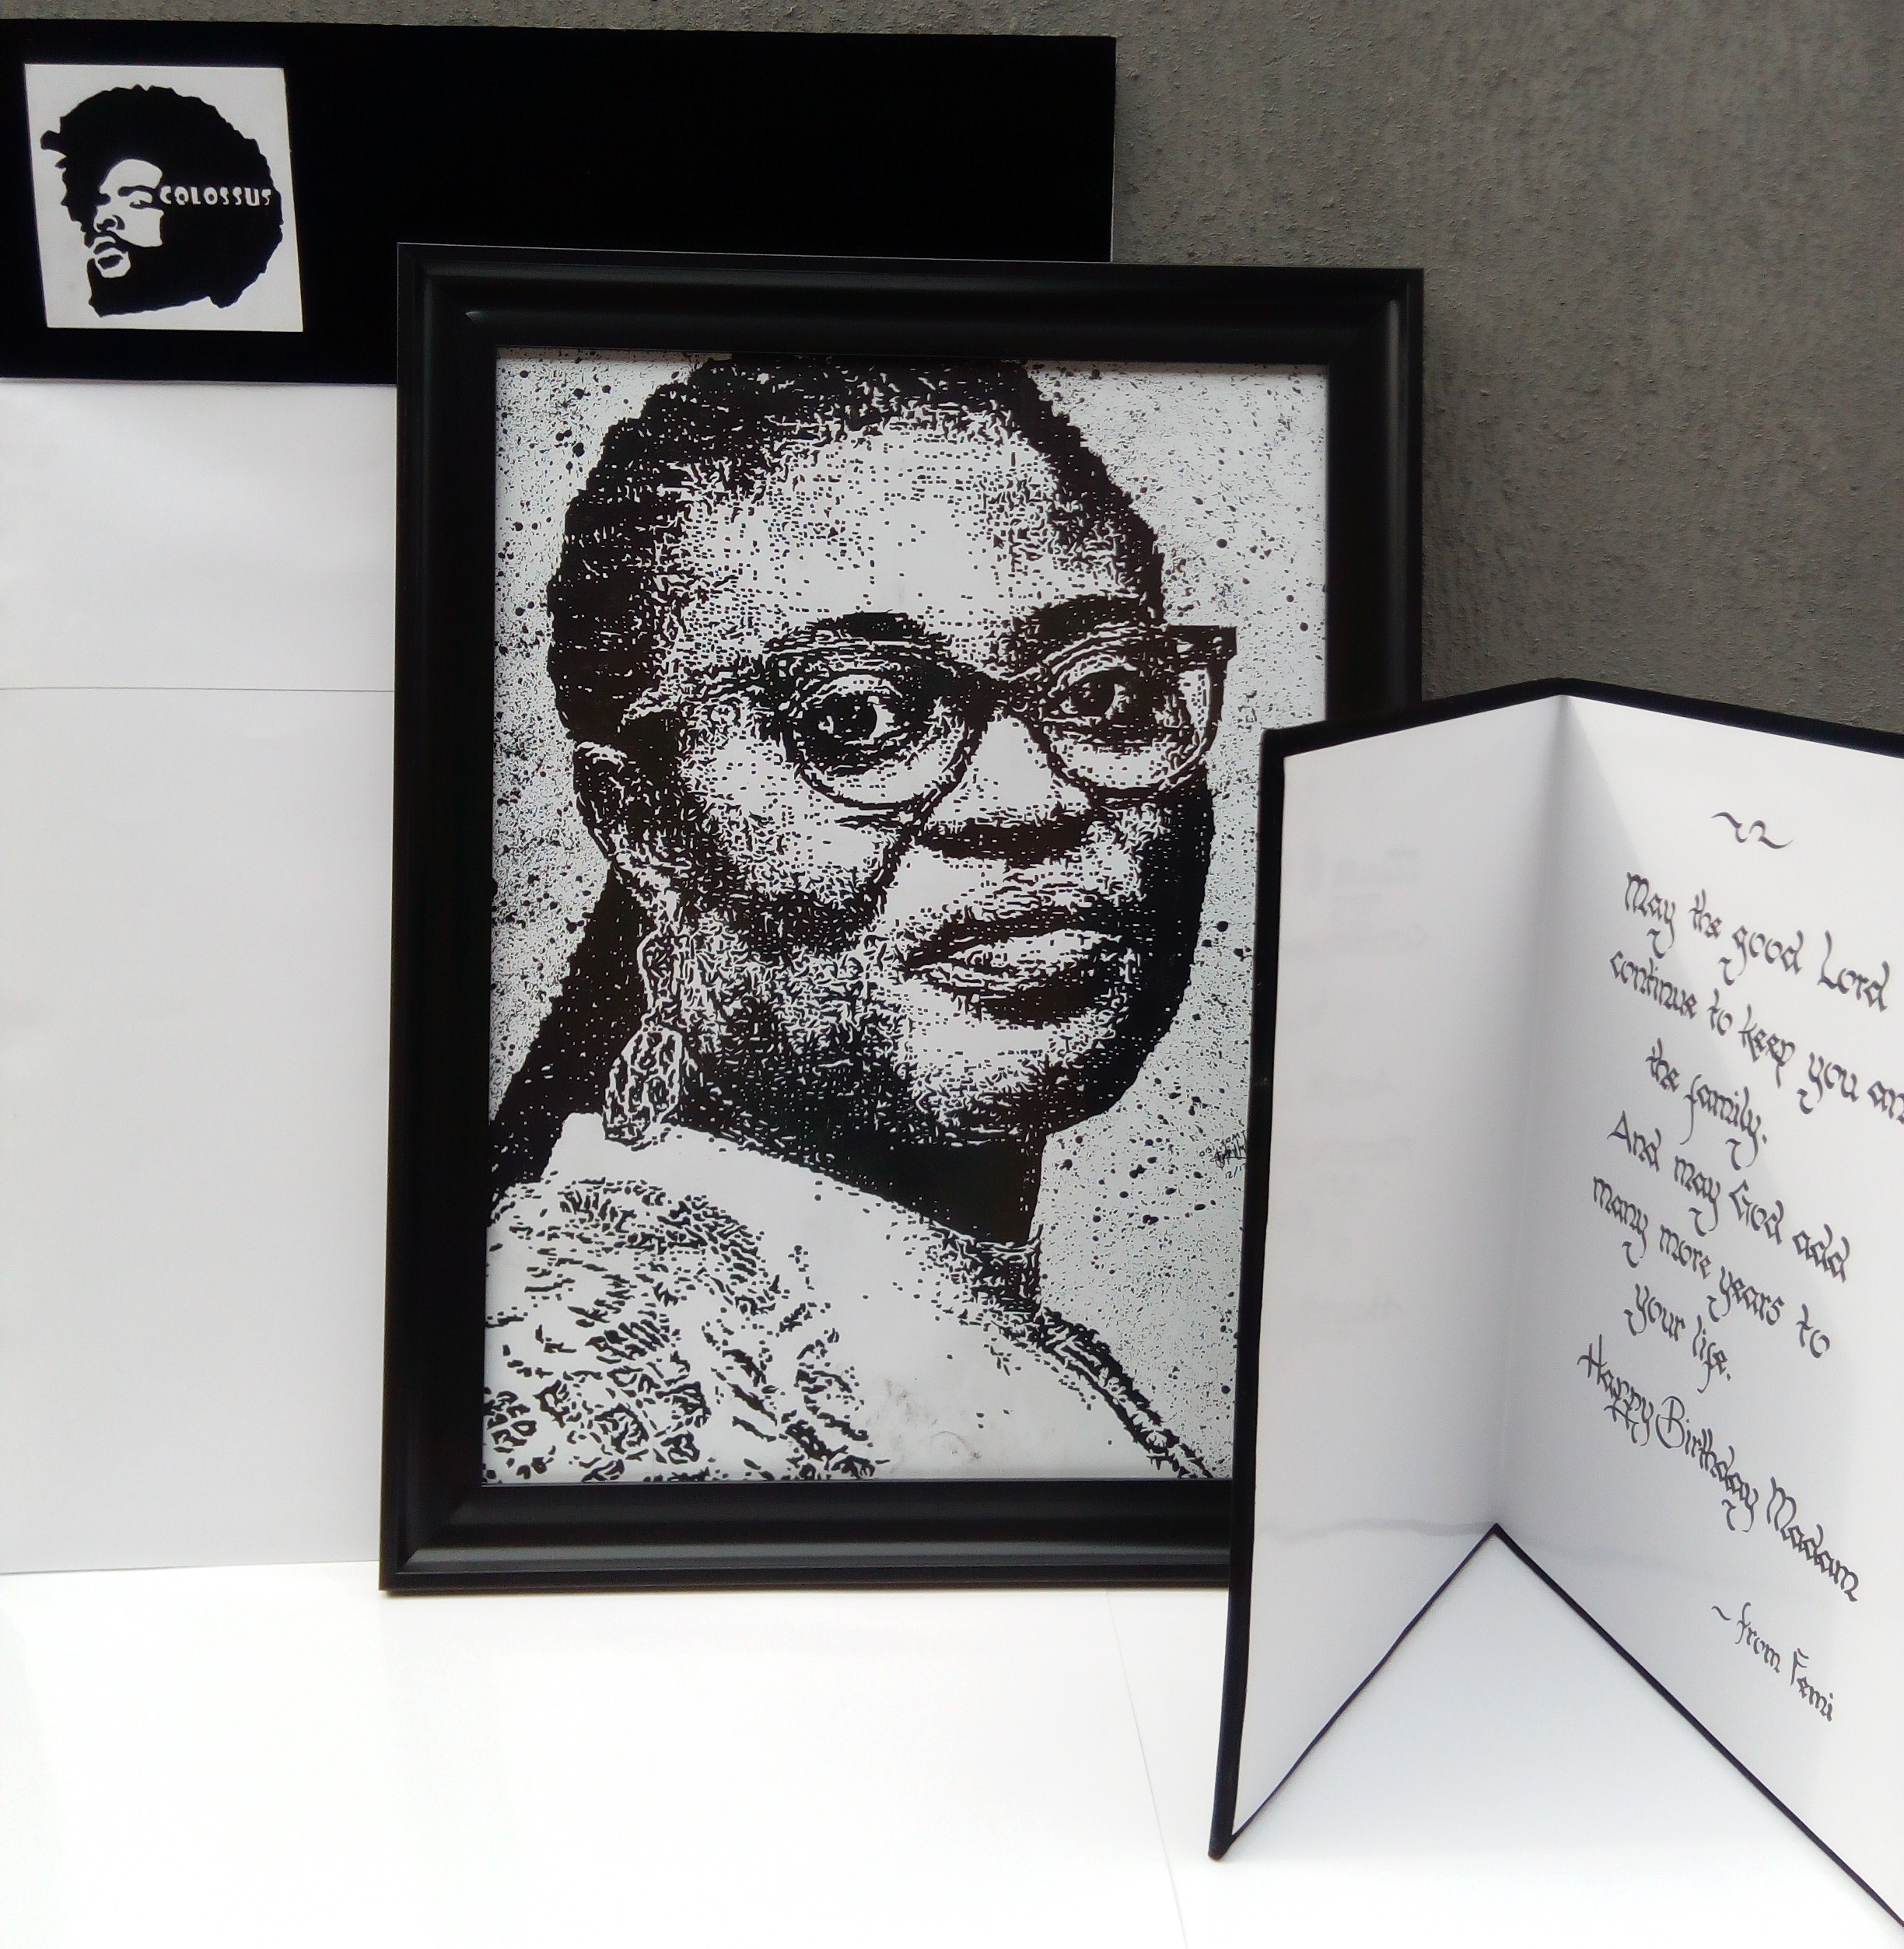 COLOSSUS
May the good Lord
continue to keep you
the family.
And may God add
many more years to
your life.
Happy Birthday Madam
~ from Femi